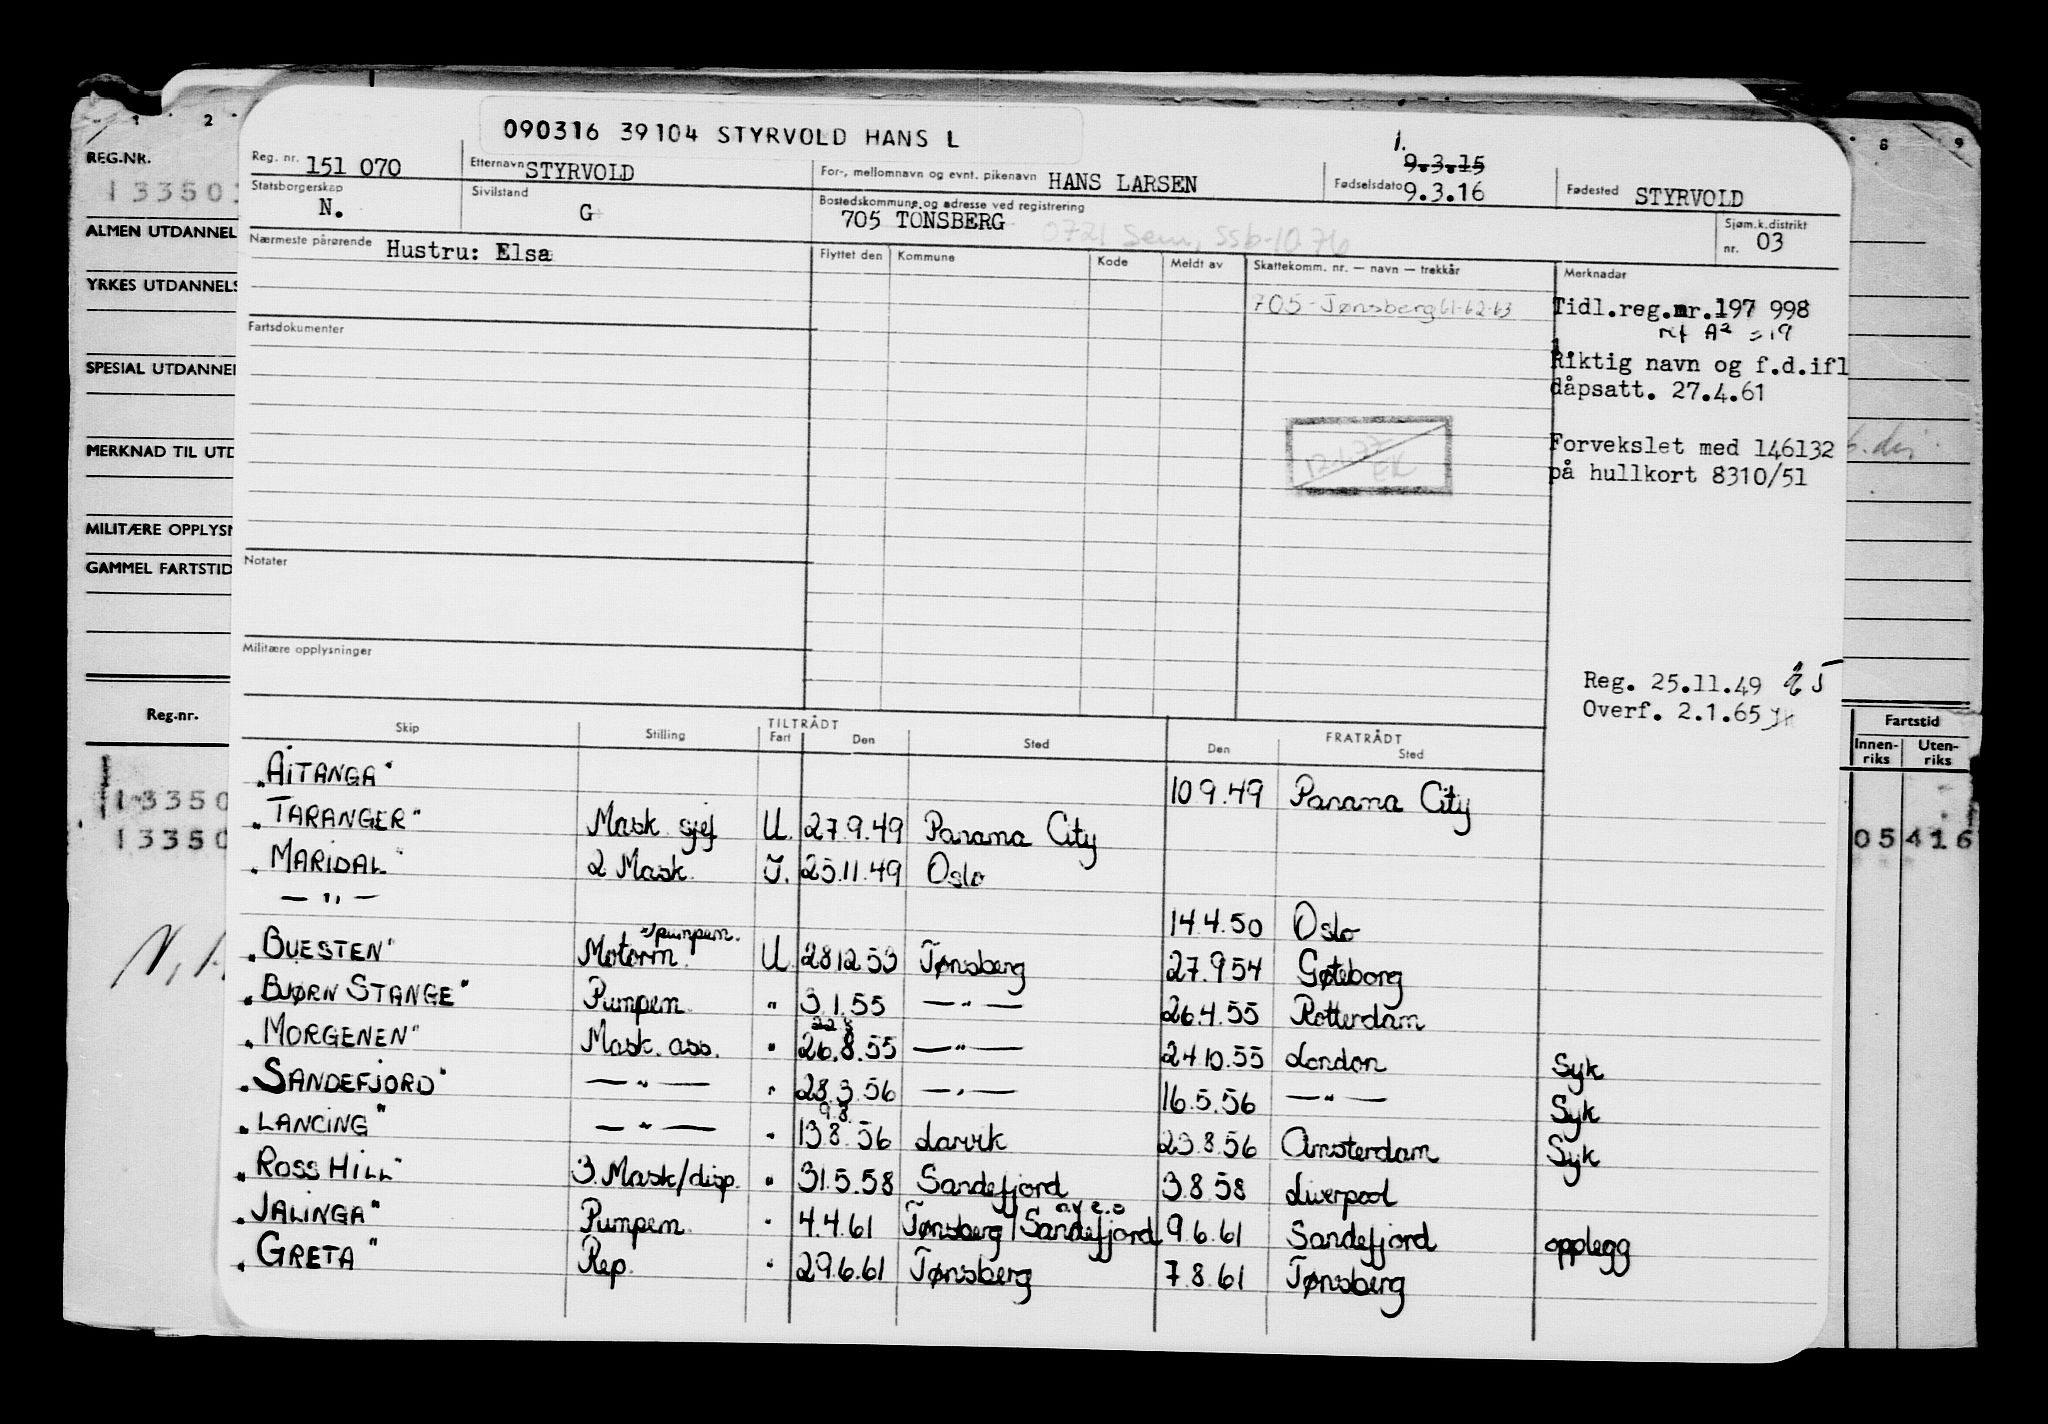 090316 39104 STYRVOLD HANS L
Reg. nr. 151 070
Etternavn STYRVOLD
For-, mellomnavn og evnt. pikenavn HANS LARSEN
1.
9.3.15
Fødselsdato 9.3.16
Fødested STYRVOLD
Statsborgerskap N.
Sivilstand G
Bostedskommune og adresse ved registrering
705 TÖNSBERG 0721 Sem, ssb-10.76
Sjøm.k.distrikt
nr. 03
Nærmeste pårørende Hustru: Elsa
Flyttet den Kommune Kode Meldt av Skattekomm. nr. — navn — trekkår Merknader
705-Tønsberg 61-62-63
Tidl.reg.nr.197 998
1.
Riktig navn og f.d.ifl
dåpsatt. 27.4.61
Forvekslet med 146132
på hullkort 8310/51
Fartsdokumenter
Notater
Militære opplysninger
Reg. 25.11.49
Overf. 2.1.65
Skip Stilling TILTRÅDT Fart Den Sted FRATRÅDT Den Sted
"AITANGA" 10.9.49 Panama City
"TARANGER" Mask sjef U. 27.9.49 Panama City
"MARIDAL" 2 Mask. I. 25.11.49 Oslo
— " — 14.4.50 Oslo
"BUESTEN" Motorm. => pumpem. U. 28.12.53 Tønsberg 27.9.54 Gøteborg
"BJØRN STANGE" Pumpem. " 3.1.55 — " — 26.4.55 Rotterdam
22.8
"MORGENEN" Mask. ass. " 26.8.55 — " — 24.10.55 London Syk
"SANDEFJORD" — " — " 28.3.56 — " — 16.5.56 — " — Syk
9.8.
"LANCING" — " — " 13.8.56 Larvik 23.8.56 Amsterdam Syk
"ROSS HILL" 3. Mask/disp. " 31.5.58 Sandefjord 3.8.58 Liverpool
"JALINGA" Pumpem. " 4.4.61 Tønsberg/Sandefjord 9.6.61 Sandefjord opplegg
"GRETA" Rep. " 29.6.61 Tønsberg 7.8.61 Tønsberg
1 2 8 9
REG.NR.
13350
ALMEN UTDANNEL
YRKES UTDANNELS
SPESIAL UTDANNEL
MERKNAD TIL UTD
MILITÆRE OPPLYSN
GAMMEL FARTSTID
Reg.nr.
13350
13350
Fartstid
Innen-
riks
Uten-
riks
05 416